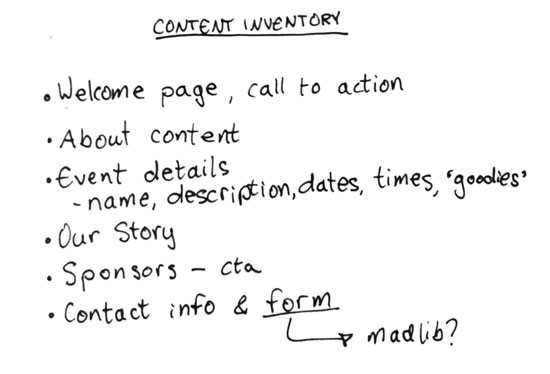 CONTENT INVENTORY
• Welcome page, call to action
• About content
• Event details
- name, description, dates, times, 'goodies'
• Our Story
• Sponsors - cta
• Contact info & form
madlib?